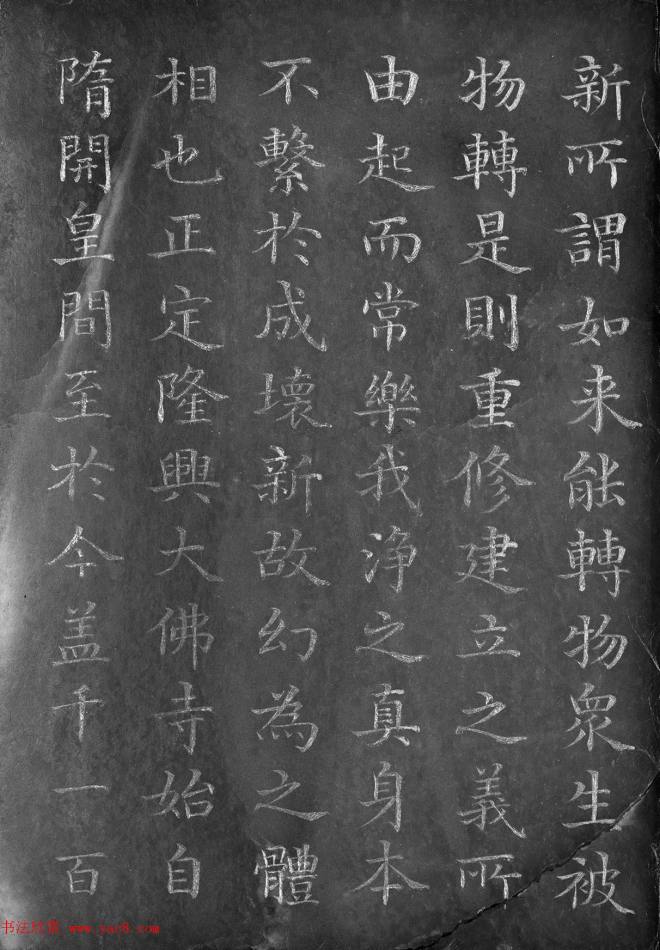 新所謂如来能轉物衆生被
物轉是則重修建立之義所
由起而常樂我浄之真身本
不繫於成壞新故幻為之體
相也正定隆興大佛寺始自
隋開皇間至於今盖千一百
书法欣赏 www.yac8.com